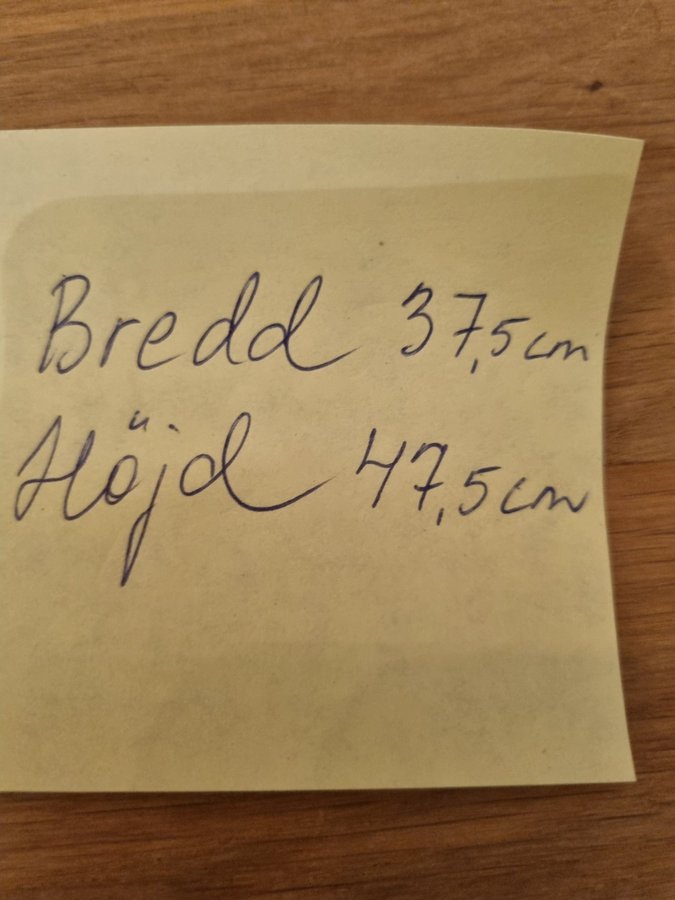 Bredd 37,5 cm
Höjd 47,5 cm